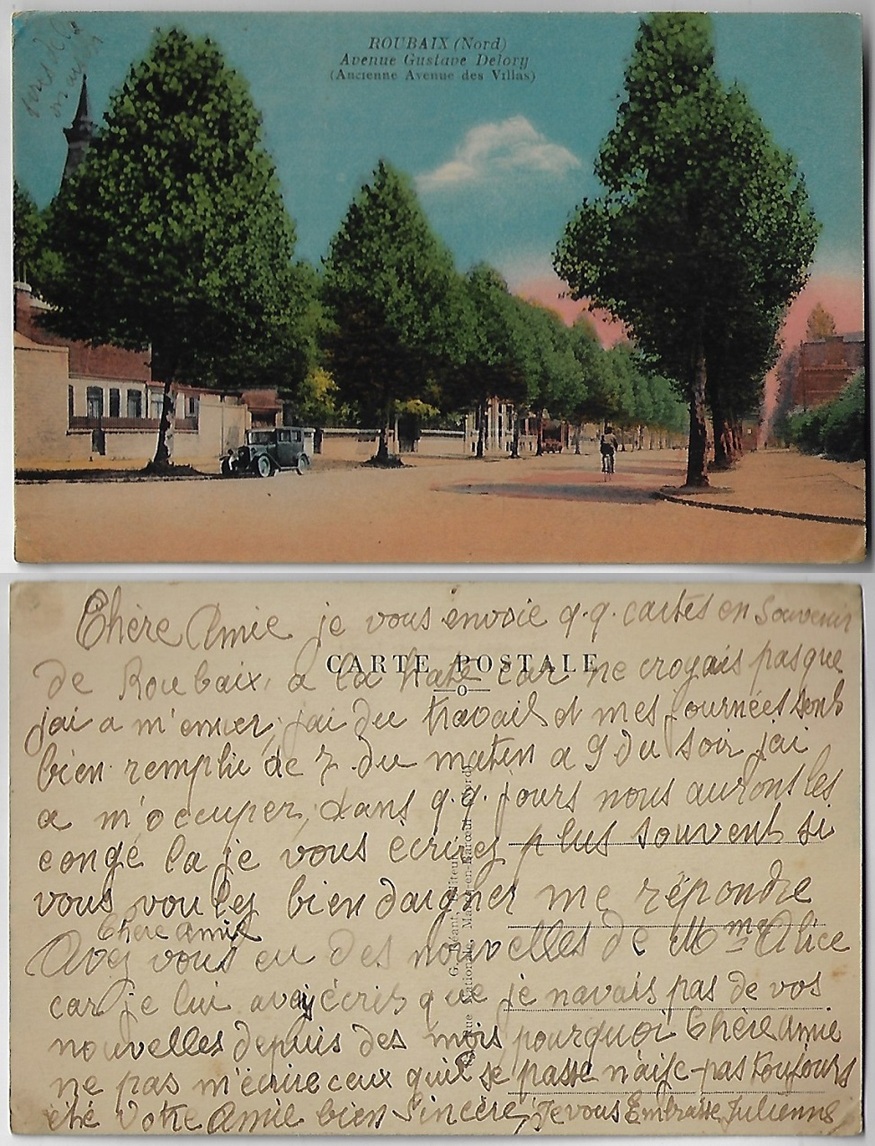 ROUBAIX (Nord)
Avenue Gustave Delory
(Ancienne Avenue des Villas)
CARTE POSTALE
Chère Amie je vous envoie q.q. cartes en Souvenir
de Roubaix, a la hate car ne croyais pas que
jai a m'enuer, jai du travail et mes journées sont
bien remplie de 7 du matin a 9 du soir jai
a m'occuper, dans q.q. jours nous aurons les
congé la je vous écrirez plus souvent si
vous voulez bien daigner me répondre
Chère amie
Avez vous eu des nouvelles de Mme Alice
car je lui avais écris que je navais pas de vos
nouvelles depuis des mois pourquoi Chère Amie
ne pas m'écrire ceux qui se passe n'aije-pas toujours
été Votre Amie bien Sincère, Je vous Embrasse, Julienne